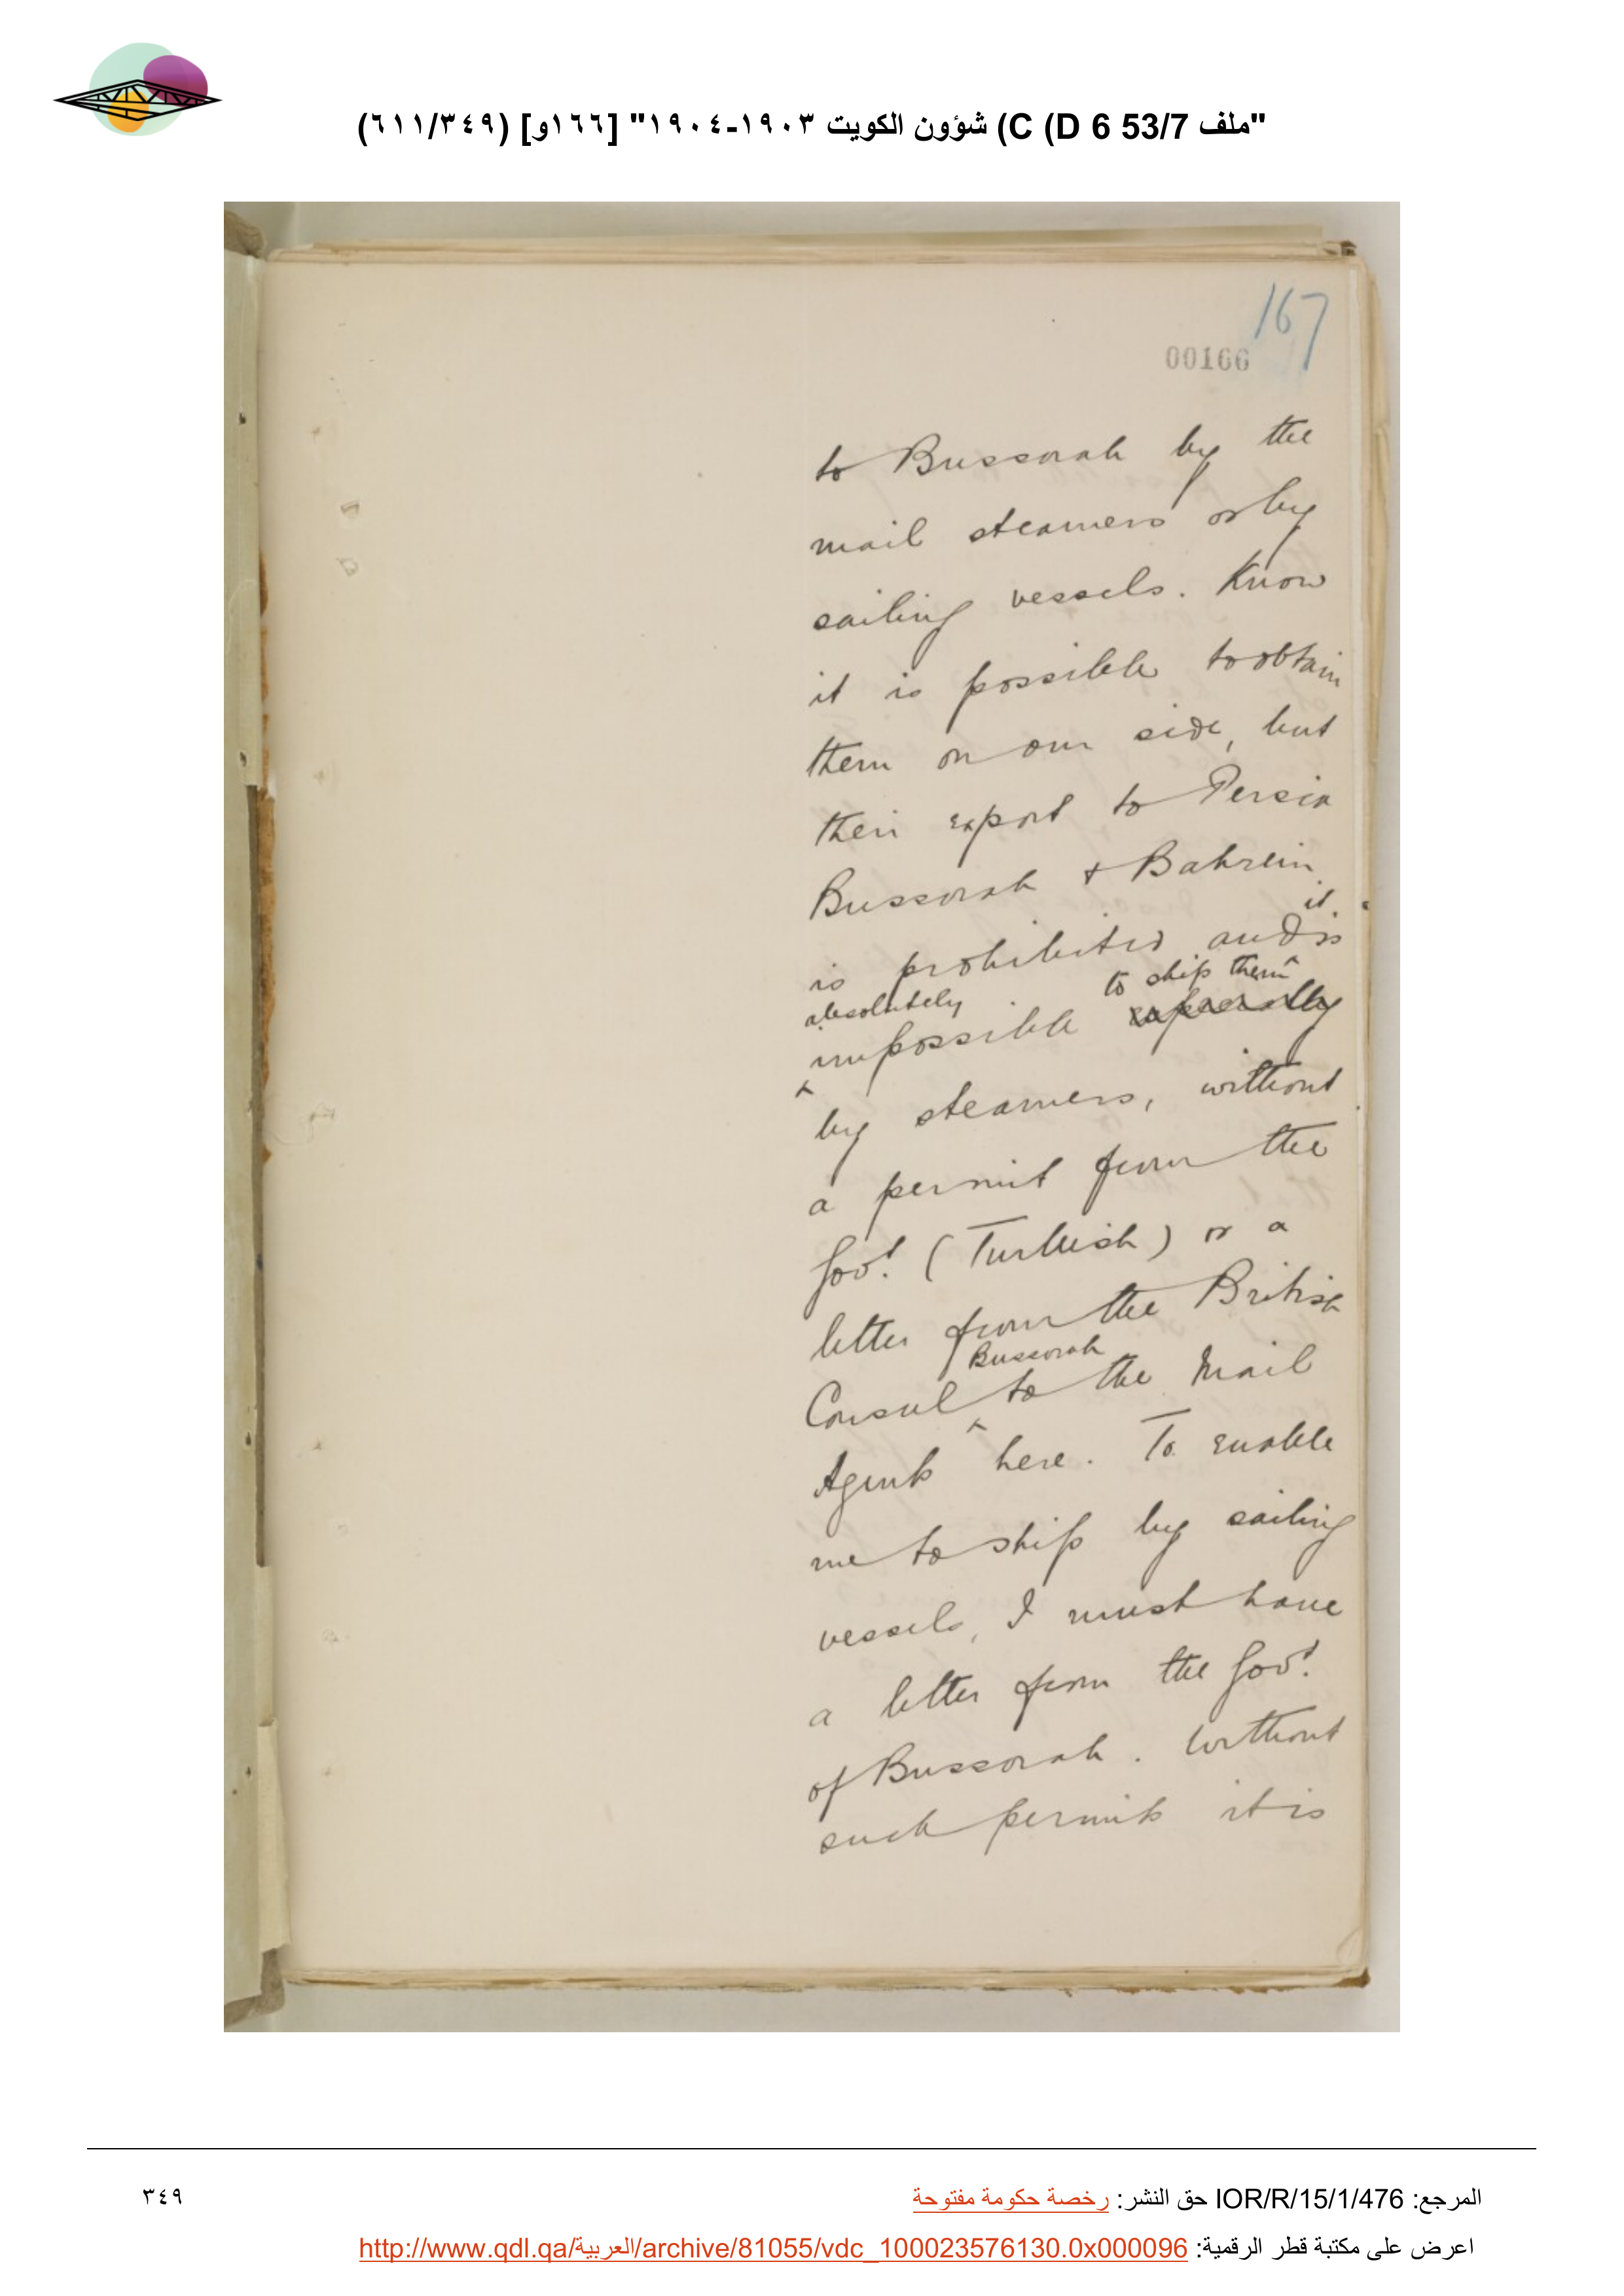 "ملف 53/7 C (D 6) شؤون الكويت ١٩٠٣-١٩٠٤" [١٦٦و] (٦١١/٣٤٩)
167
00166
to Bussorah by the
mail steamers or by
sailing vessels. Know
it is possible to obtain
them on our side, but
their export to Persia
Bussorah & Bahrein
is prohibited and it is
absolutely impossible to ship them
by steamers, without
a permit from the
Govt. (Turkish) or a
letter from the British
Consul Bussorah to the Mail
Agents here. To enable
me to ship by sailing
vessels, I must have
a letter from the Govt.
of Bussorah. Without
such permits it is
المرجع: IOR/R/15/1/476 حق النشر: رخصة حكومة مفتوحة
٣٤٩
اعرض على مكتبة قطر الرقمية: http://www.qdl.qa/العربية/archive/81055/vdc_100023576130.0x000096